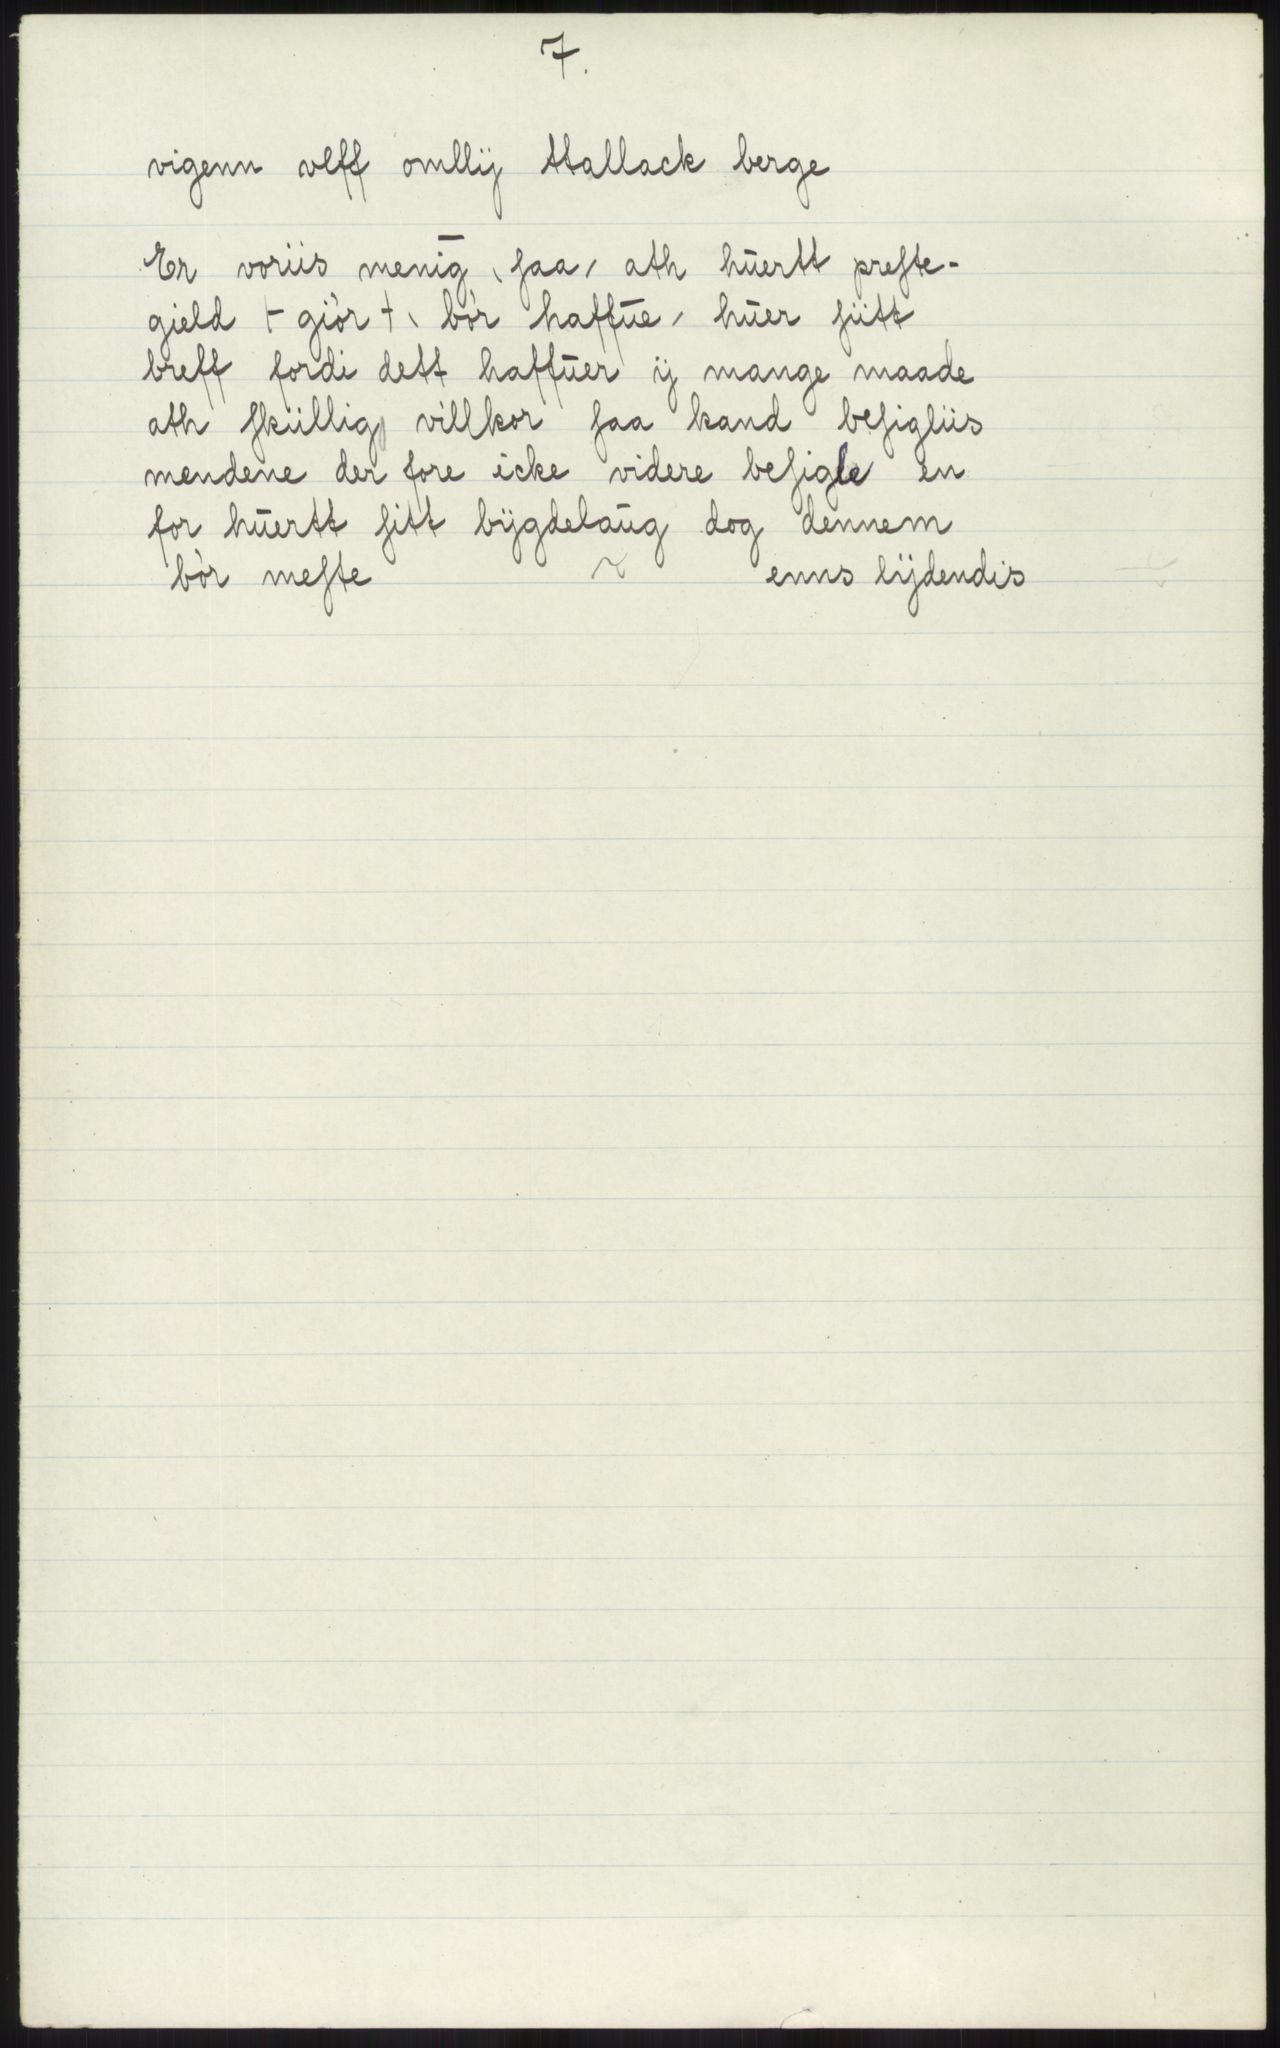 7.
vigenn vlff omllÿ ttallack berge
Er voriis menig̅ \ ſaa / ath hūertt preſte-
gield ⊢ giòr + \ bòr haffūe / hūer ſiitt
breff fordi dett haffūer ÿ mange maade
ath ſkiillig villkor ſaa kand beſigliis
mendene der fore icke videre beſigle en
for hūertt ſitt bÿgdelaūg dog dennem
bòr meſte ~ enns lÿdendis